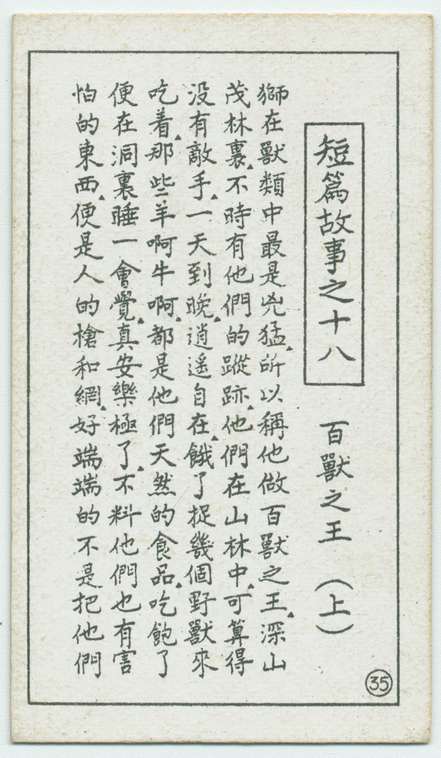 短篇故事之十八
百獸之王（上）
獅在獸類中最是兇猛▲所以稱他做百獸之王▲深山
茂林裏▲不時有他們的蹤跡▲他們在山林中▲可算得
没有敵手▲一天到晚▲逍遥自在▲餓了捉幾個野獸來
吃着▲那些羊啊牛啊▲都是他們天然的食品▲吃飽了
便在洞裏睡一會覺▲真安樂極了▲不料他們也有害
怕的東西▲便是人的槍和網▲好端端的不是把他們
35